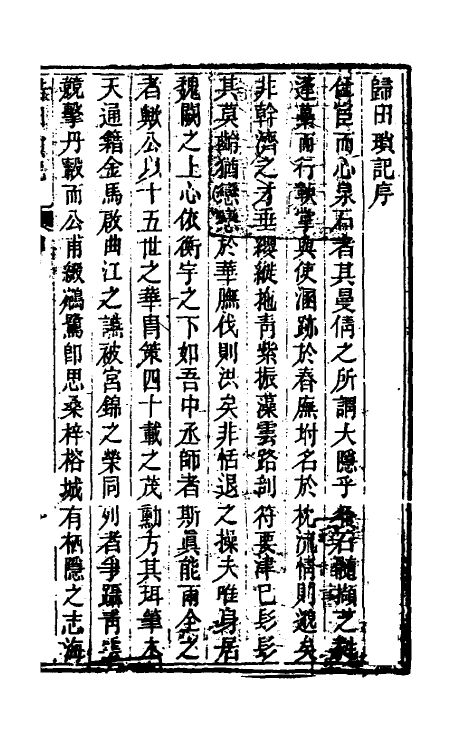 歸田瑣記序
宦而心泉石者其曼倩之所謂大隱乎餐石髓擷芝
蓬藁而行執掌與使溷跡於舂廡坿名於枕流情則逖矣
非幹濟之才垂纓縰拖靑紫振藻雲路剖符要津已髟髟
其莫齡猶戀戀於華膴伐則洪矣非恬退之操夫唯身居
魏闕之上心依衡宇之下如吾中丞師者斯眞能兩全之
者歟公以十五世之華胄策四十載之茂勳方其珥筆木
天通籍金馬啟曲江之讌被宮錦之榮同列者爭躡靑雲
競擊丹轂而公甫綴鵷鷺卽思桑梓榕城有栖隱之志海